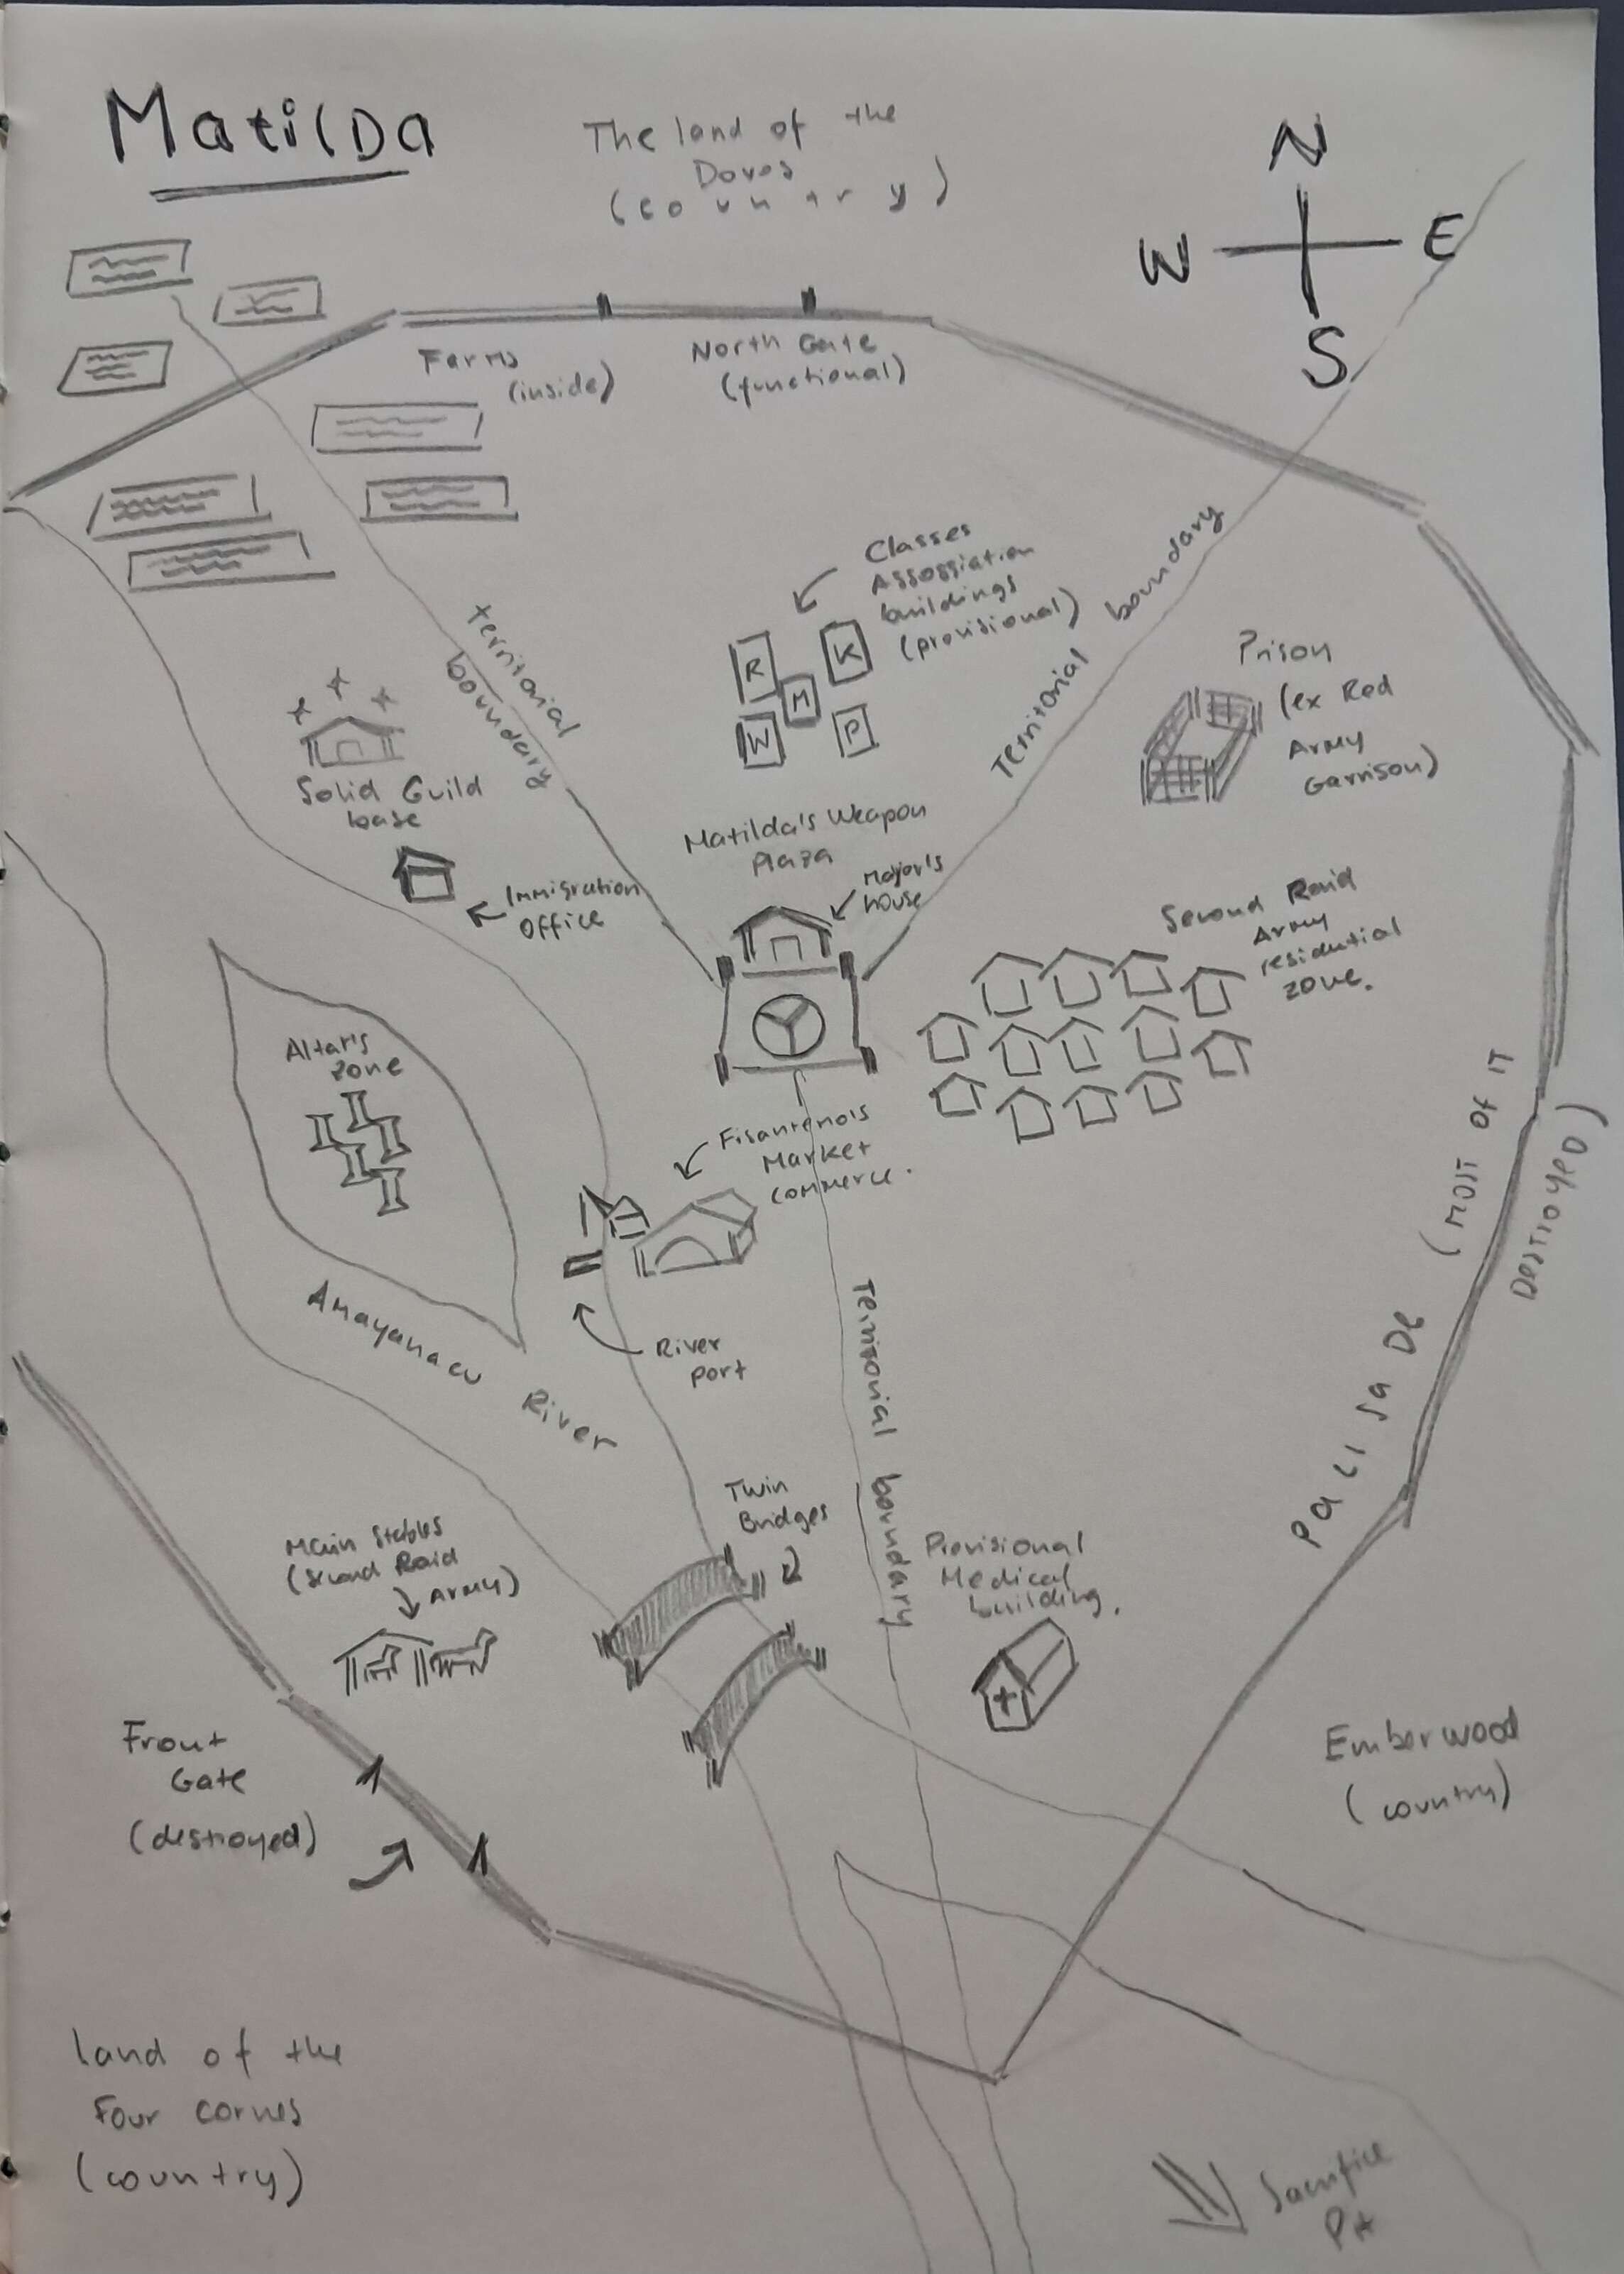 MatilDa
The land of the
Doves
(country)
N
W
E
S
Farms
(inside)
North Gate
(functional)
Classes
Assossiation
buildings
(provisional)
R
K
M
W
P
territorial
boundary
Territorial boundary
Prison
(ex Red
Army
Garrison)
Solid Guild
base
Immigration
office
Matilda's Weapon
Plaza
Major's
house
Second Raid
Army
residential
zone.
Altar's
zone
Fisanteno's
Market
commerce.
River
port
Amayanacu River
Territorial boundary
PaLisaDe (MOST OF IT
DestroyeD)
Twin
Bridges
Main Stables
(second Raid
Army)
Provisional
Medical
building.
Front
Gate
(destroyed)
Emberwood
(country)
land of the
Four cornes
(country)
Sacrifice
Pit